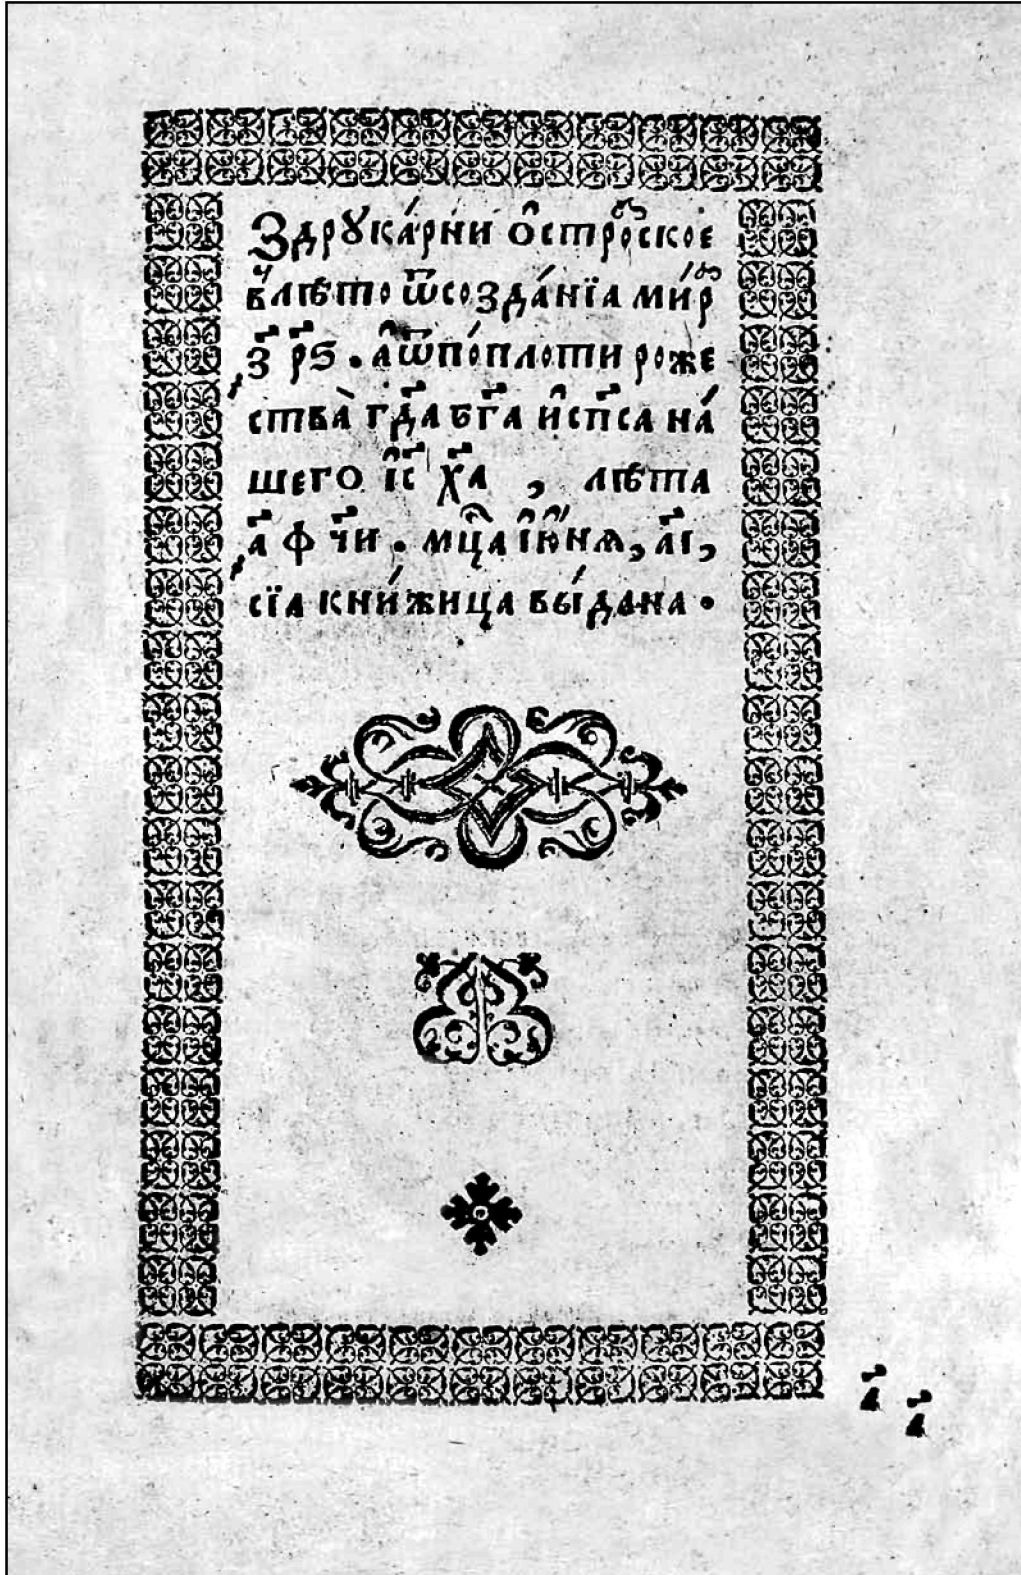 Здрꙋка́рни о̑стро́з̾ское
в̾лѣто ѿсозда́нїа ми́рꙋ
҂з҃ р҃ѕ . а̑ѿпо́плоти роже
ства̀ г҃да б҃га и̑сп҃са на́
шего і҃с х҃а , лѣта
҂а҃ ф ч҃и . мц҃а і̑ю́нѧ, а҃і,
сїа кни́жица вы́дана .
а҃ а҃